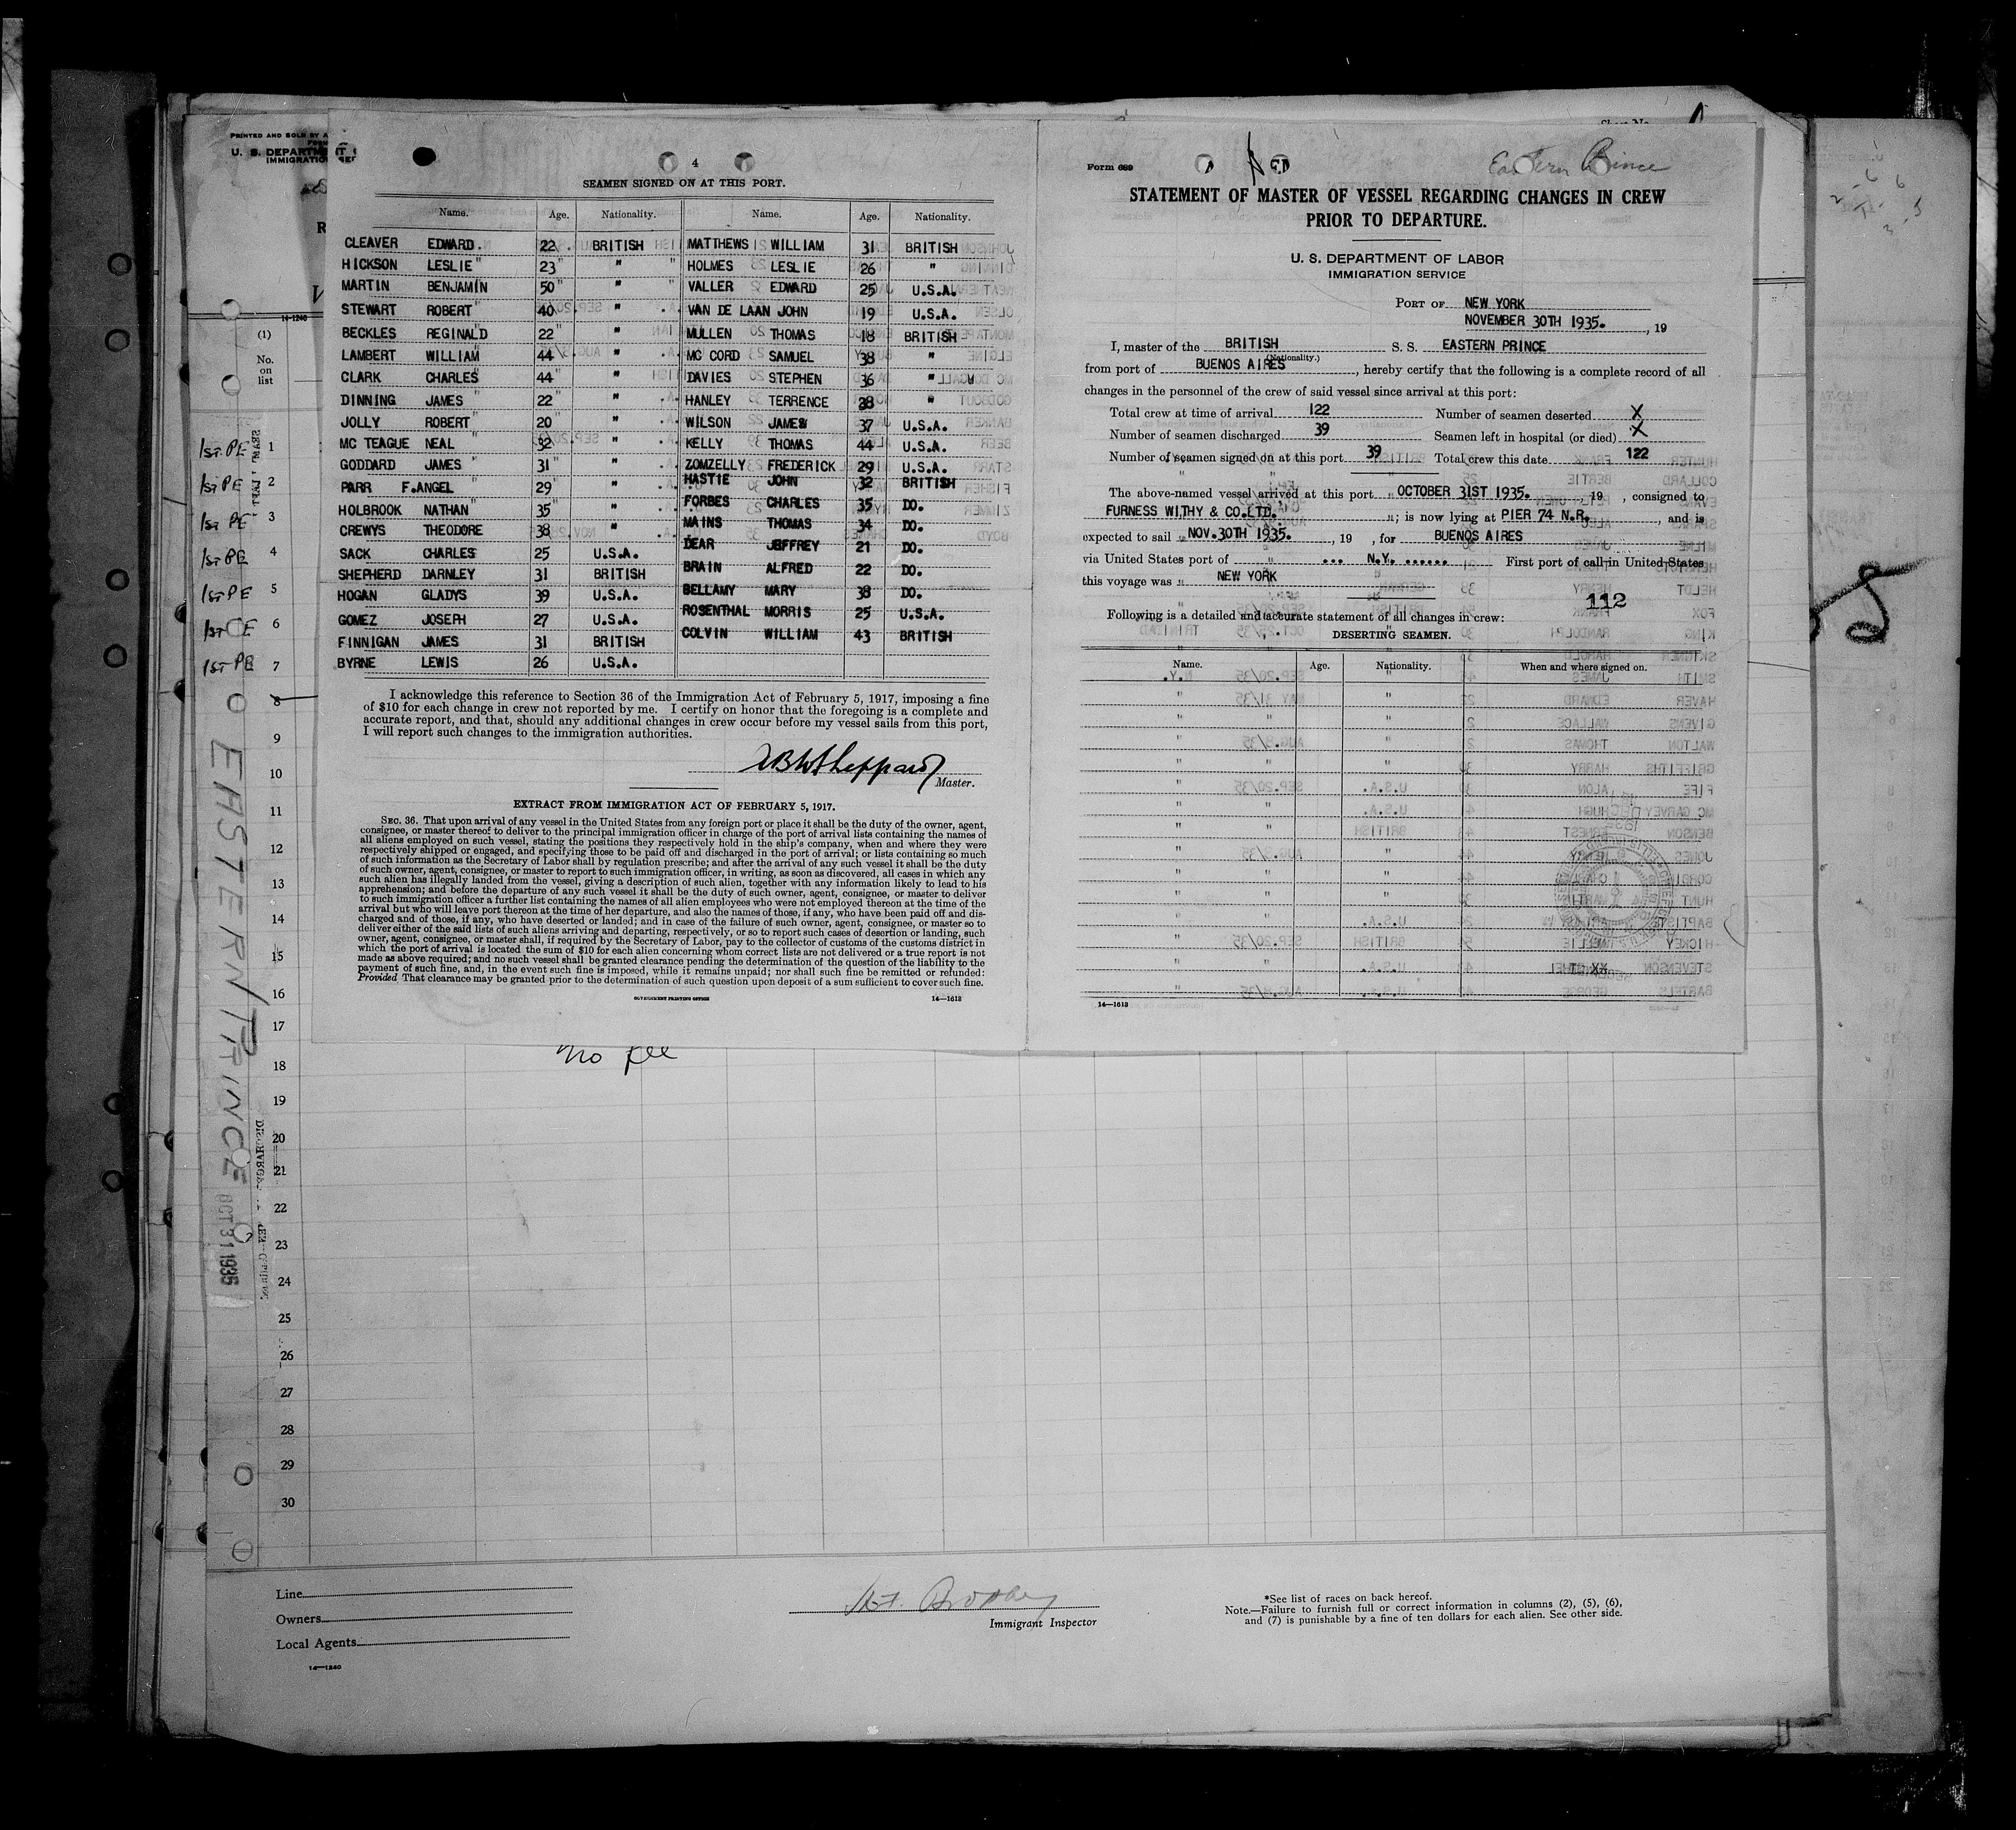 PRINTED AND SOLD BY
U. S. DEPARTMENT
IMMIGRATION
14-1240
(1)
No.
on
list
4
SEAMEN SIGNED ON AT THIS PORT.
Name. Age. Nationality. Name. Age. Nationality.
CLEAVER EDWARD. 22 BRITISH MATTHEWS WILLIAM 31 BRITISH
HICKSON LESLIE 23 " HOLMES LESLIE 26 "
MARTIN BENJAMIN 50 " VALLER EDWARD 25 U.S.A.
STEWART ROBERT 40 " VAN DE LAAN JOHN 19 U.S.A.
BECKLES REGINALD 22 " MULLEN THOMAS 18 BRITISH
LAMBERT WILLIAM 44 " MC CORD SAMUEL 38 "
CLARK CHARLES 44 " DAVIES STEPHEN 36 "
DINNING JAMES 22 " HANLEY TERRENCE 28 "
JOLLY ROBERT 20 " WILSON JAMES 37 U.S.A.
MC TEAGUE NEAL 32 " KELLY THOMAS 44 U.S.A.
GODDARD JAMES 31 " ZOMZELLY FREDERICK 29 U.S.A.
PARR F.ANGEL 29 " HASTIE JOHN 32 BRITISH
HOLBROOK NATHAN 35 " FORBES CHARLES 35 DO.
CREWYS THEODORE 38 " MAINS THOMAS 34 DO.
SACK CHARLES 25 U.S.A. DEAR JEFFREY 21 DO.
SHEPHERD DARNLEY 31 BRITISH BRAIN ALFRED 22 DO.
HOGAN GLADYS 39 U.S.A. BELLAMY MARY 38 DO.
GOMEZ JOSEPH 27 U.S.A. ROSENTHAL MORRIS 25 U.S.A.
FINNIGAN JAMES 31 BRITISH COLVIN WILLIAM 43 BRITISH
BYRNE LEWIS 26 U.S.A.
I acknowledge this reference to Section 36 of the Immigration Act of February 5, 1917, imposing a fine
of $10 for each change in crew not reported by me. I certify on honor that the foregoing is a complete and
accurate report, and that, should any additional changes in crew occur before my vessel sails from this port,
I will report such changes to the immigration authorities.
Sheppard
Master.
EXTRACT FROM IMMIGRATION ACT OF FEBRUARY 5, 1917.
SEC. 36. That upon arrival of any vessel in the United States from any foreign port or place it shall be the duty of the owner, agent,
consignee, or master thereof to deliver to the principal immigration officer in charge of the port of arrival lists containing the names of
all aliens employed on such vessel, stating the positions they respectively hold in the ship's company, when and where they were
respectively shipped or engaged, and specifying those to be paid off and discharged in the port of arrival; or lists containing so much
of such information as the Secretary of Labor shall by regulation prescribe; and after the arrival of any such vessel it shall be the duty
of such owner, agent, consignee, or master to report to such immigration officer, in writing, as soon as discovered, all cases in which any
such alien has illegally landed from the vessel, giving a description of such alien, together with any information likely to lead to his
apprehension; and before the departure of any such vessel it shall be the duty of such owner, agent, consignee, or master to deliver
to such immigration officer a further list containing the names of all alien employees who were not employed thereon at the time of the
arrival but who will leave port thereon at the time of her departure, and also the names of those, if any, who have been paid off and dis-
charged and of those, if any, who have deserted or landed; and in case of the failure of such owner, agent, consignee, or master so to
deliver either of the said lists of such aliens arriving and departing, respectively, or so to report such cases of desertion or landing, such
owner, agent, consignee, or master shall, if required by the Secretary of Labor, pay to the collector of customs of the customs district in
which the port of arrival is located the sum of $10 for each alien concerning whom correct lists are not delivered or a true report is not
made as above required; and no such vessel shall be granted clearance pending the determination of the question of the liability to the
payment of such fine, and, in the event such fine is imposed, while it remains unpaid; nor shall such fine be remitted or refunded:
Provided That clearance may be granted prior to the determination of such question upon deposit of a sum sufficient to cover such fine.
GOVERNMENT PRINTING OFFICE 14—1613
Form 689
Eastern Prince
STATEMENT OF MASTER OF VESSEL REGARDING CHANGES IN CREW
PRIOR TO DEPARTURE.
U. S. DEPARTMENT OF LABOR
IMMIGRATION SERVICE
PORT OF NEW YORK
NOVEMBER 30TH 1935. , 19
I, master of the BRITISH S. S. EASTERN PRINCE
(Nationality.)
from port of BUENOS AIRES, hereby certify that the following is a complete record of all
changes in the personnel of the crew of said vessel since arrival at this port:
Total crew at time of arrival 122 Number of seamen deserted X
Number of seamen discharged 39 Seamen left in hospital (or died) X
Number of seamen signed on at this port 39 Total crew this date 122
The above-named vessel arrived at this port OCTOBER 31ST 1935. , 19 , consigned to
FURNESS WITHY & CO.LTD. ; is now lying at PIER 74 N.R. , and is
expected to sail NOV.30TH 1935. , 19 , for BUENOS AIRES
via United States port of ... N.Y. ...... First port of call in United States
this voyage was NEW YORK
112
Following is a detailed and accurate statement of all changes in crew:
DESERTING SEAMEN.
Name. Age. Nationality. When and where signed on.
14—1613
1st PE 1
1st PE 2
1st PE 3
1st PE 4
1st PE 5
1st CE 6
1st PE 7
8
9
10
11
12
13
14
15
16
17
18
19
20
21
22
23
24
25
26
27
28
29
30
EASTERN PRINCE
OCT 31 1935
no fee
Line
Owners
Local Agents
14—1240
Immigrant Inspector
*See list of races on back hereof.
Note.—Failure to furnish full or correct information in columns (2), (5), (6),
and (7) is punishable by a fine of ten dollars for each alien. See other side.